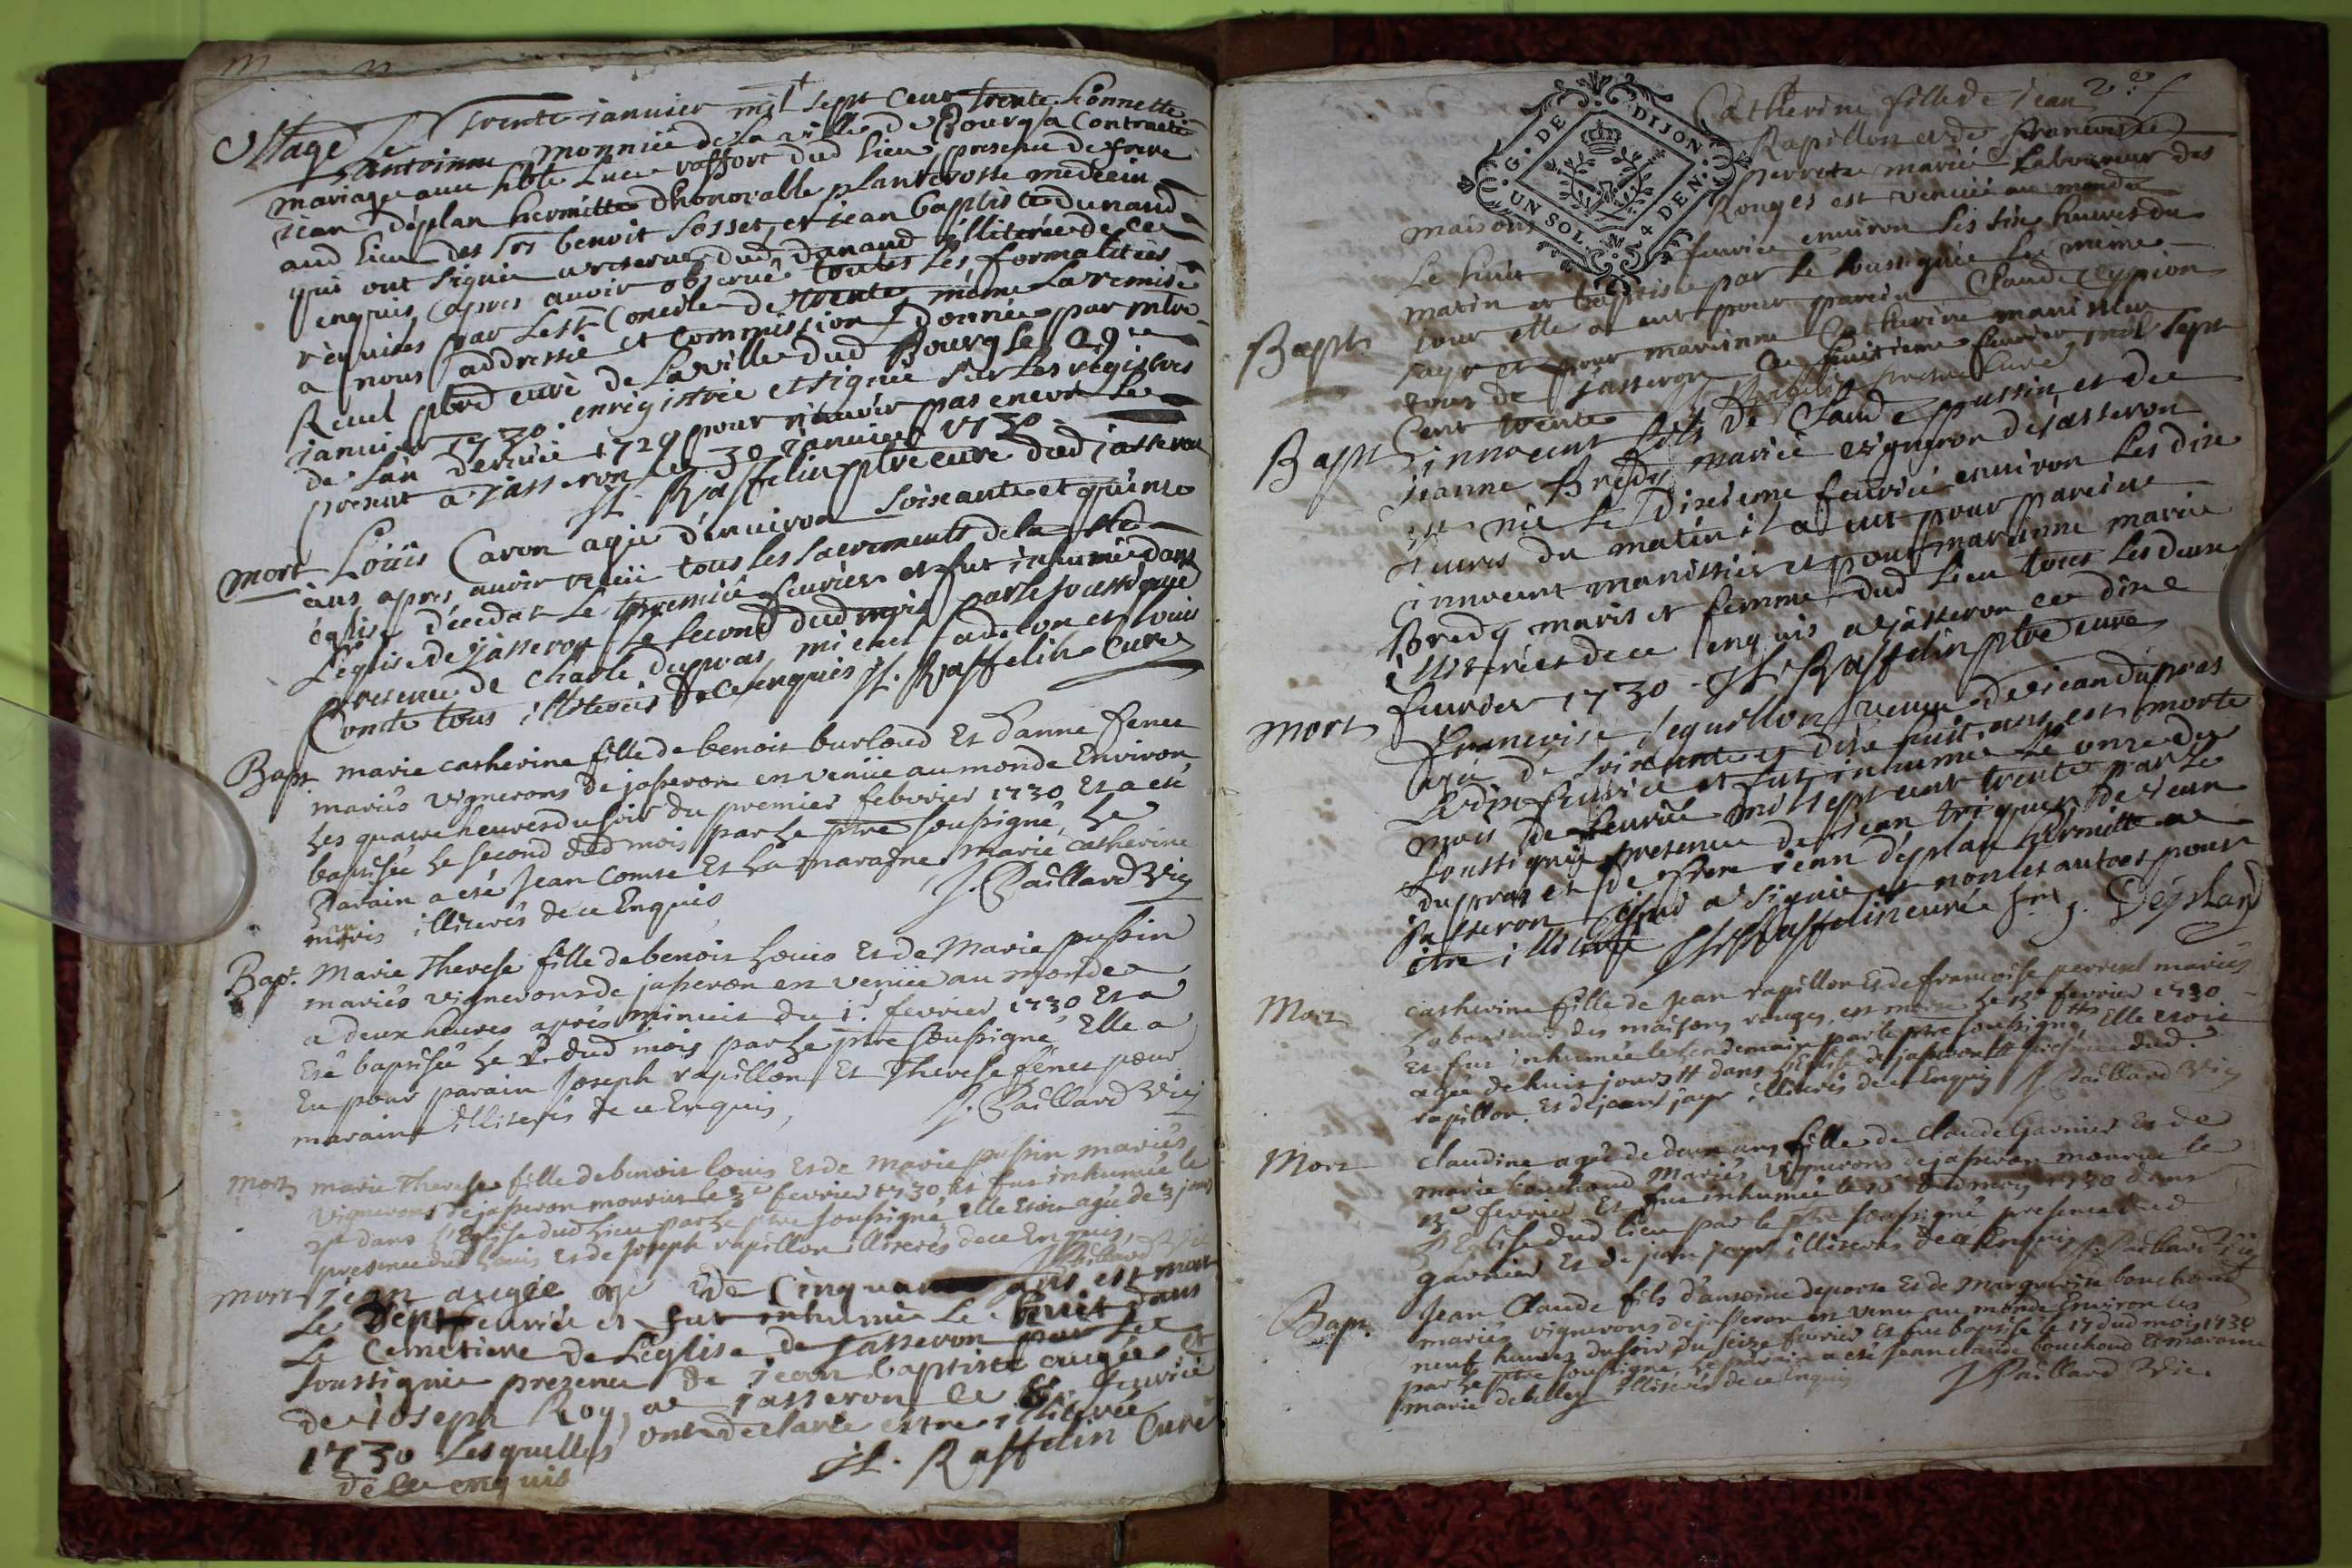 Mage Le trente janvier mil sept cent trente honnette
antoinne monnié de la ville de Bourg a Contracté
mariage avec hble Luce raffort dud lieu presence de frere
jean déplan hermitte dhonorable planterosse medecin
aud lieu des srs benoit sosset, et jean baptiste dunand
qui ont signé a reserve dud dunand illiteré de ce
enquis, apres avoir observé toutes les formalitées
requises par le st Concile de trente, même la remise
a nous addressée et commission donnée par mtre
Ruel pbre curé de la ville dud Bourg le 29e
janvier 1730. enregistrée et signée sur les registres
de l'an dernié 1729 pour n'avoir pas encor le
present a jasseron le 30 janvier 1730
JL. Raffelin ptre curé dud jasseron
mort Loüis Caron agé d'environ soixante et quinze
ans apres avoir recü tous les sacrements de la ste
églisse décédat le premié feuvrier et fut inhumé dans
L'eglise de jasseron le second dud mois par le soussigné
presence de charle dupras, michel et louis
Conte tous illiterés de ce enquis JL. Raffelin Curé
Bapt marie catherine fille de benoit burloud Et Danne fenet
mariés vignerons de jasseron est venüe au monde Environ
les quatre heures du soir du premier febvrier 1730 Et a eté
baptisée le second dud mois par le ptre soussigné, le
Parain a eté Jean Comte Et la maraine, marie catherine
illiterés de ce Enquis J. Paillard Vic
Bapt. Marie Therese fille de benoit Louis Et de Marie pussin
mariés vignerons de jasseron est venüe au monde
a deux heures après minuit du 1r. fevrier 1730 Et a
Eté baptisée le 2e dud mois par le ptre soussigné Elle a
Eu pour parain Joseph rapillon Et Therese fenet pour
maraine illiterés de ce Enquis, J. Paillard Vic
mort marie Therese fille de benoit louis Et de marie pussin mariés
vignerons de jasseron mourut le 3e fevrier 1730, Et fut inhumée le
dans l'Eglise dud lieu par le ptre soussigné, Elle etoit agée de 3 jours
presence dud louis Et de Joseph rapillon illiterés de ce Enquis, J Paillard Vic
mort jean augée agé de Cinquante ans est mort
Le sept feuvrié et fut inhumé Le huit dans
Le Cemetiere de L'eglise de jasseron par Le
soussigné presence de jean baptiste augée et
de joseph Roy, a jasseron ce 8e feuvrié
1730 Lesquelles ont declaré estre illiterée
de ce enquis JL. Raffelin Curé
2e. f
G. DE DIJON. UN SOL. 4 DEN.
Catherine fille de jean
Rapillon et de francoise
Perret mariée Laboureur des
maisons Rouges est venüe au monde
Le huit feuvrié environ les six heures du
matin et baptisée par le soussigné le même
Bapt jour elle a eut pour parein Claude
jayr et pour marinne Catherine manissier
tous de jasseron Ce huitieme feuvrier mil sept
Cent trente Raffelin prestre Curé
Bapt innocent fils de Claude pussin et de
jeanne Bredy mariée vigneron de jasseron
est né le Dixieme feuvrié environ les dix
heures du matin il a eut pour pareine
innocent manissier et pour marinne marie
Bredy maris et femme dud lieu tous les deux
illiterées de ce enquis a jasseron ce dixe
feuvrier 1730 - JL Raffelin ptre curé
mort Francoise seguillon veuve de jean dupras
agée de soixante et dix huit ans est morte
Le dix feuvrié et fut inhumée le onze du
mois de feuvrié mil sept cent trente par Le
soussigné presence de jean triquer, de jean
dupras et de frere jean déplan hérmitte a
jasseron qui a signé et non les autres pour
être illiteré JL Raffelin curé fre j. Déplan
Mort Catherine fille de Jean rapillon Et de francoise perret mariés
Laboureurs des maisons rouges, est morte le 13e fevrier 1730
Et fut inhumée le lendemain par le ptre soussigné, Elle etoit
agée de huit jours dans l'Eglise de jasseron presence dud.
rapillon. Et de jean jayr illiterés de ce Enquis J. Paillard Vic
Mort Claudine agée de deux ans fille de Claude Garnier Et de
marie bouchoud Mariés vignerons de jasseron mourut le
13e fevrier Et fut inhumée le dud mois 1730 dans
L'Eglise dud lieu par le ptre soussigné presence dud
garnier Et de jean jayr illiterés de ce Enquis J. Paillard Vic
Bapt. Jean Claude fils d'antoine deporte Et de Marguerite bouchoud
mariés vignerons de jasseron est venu au monde Environ les
neuf heures du soir du seize fevrier Et fut baptisé le 17 dud mois 1730
par le ptre soussigné, le parain a eté jean claude bouchoud Et maraine
marie debelley illiterés de ce Enquis J Paillard Vic.